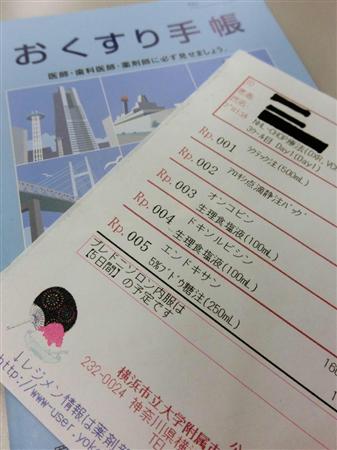 おくすり手帳
医師・歯科医師・薬剤師に必ず見せましょう。
NHL-CHOP療法(DXR, VC
3クール目 Day1(Day1)
Rp.001
ラクテック注(500mL)
Rp.002
アロキシ点滴静注バッグ
Rp.003
オンコビン
生理食塩液(100mL)
Rp.004
ドキソルビシン
生理食塩液(100mL)
Rp.005
エンドキサン
5%ブドウ糖注(250mL)
プレドニゾロン内服は
【5日間】の予定です
↓レジメン情報は薬剤部
http://www-user.yoko
横浜市立大学附属市
232-0024 神奈川県横
TEL